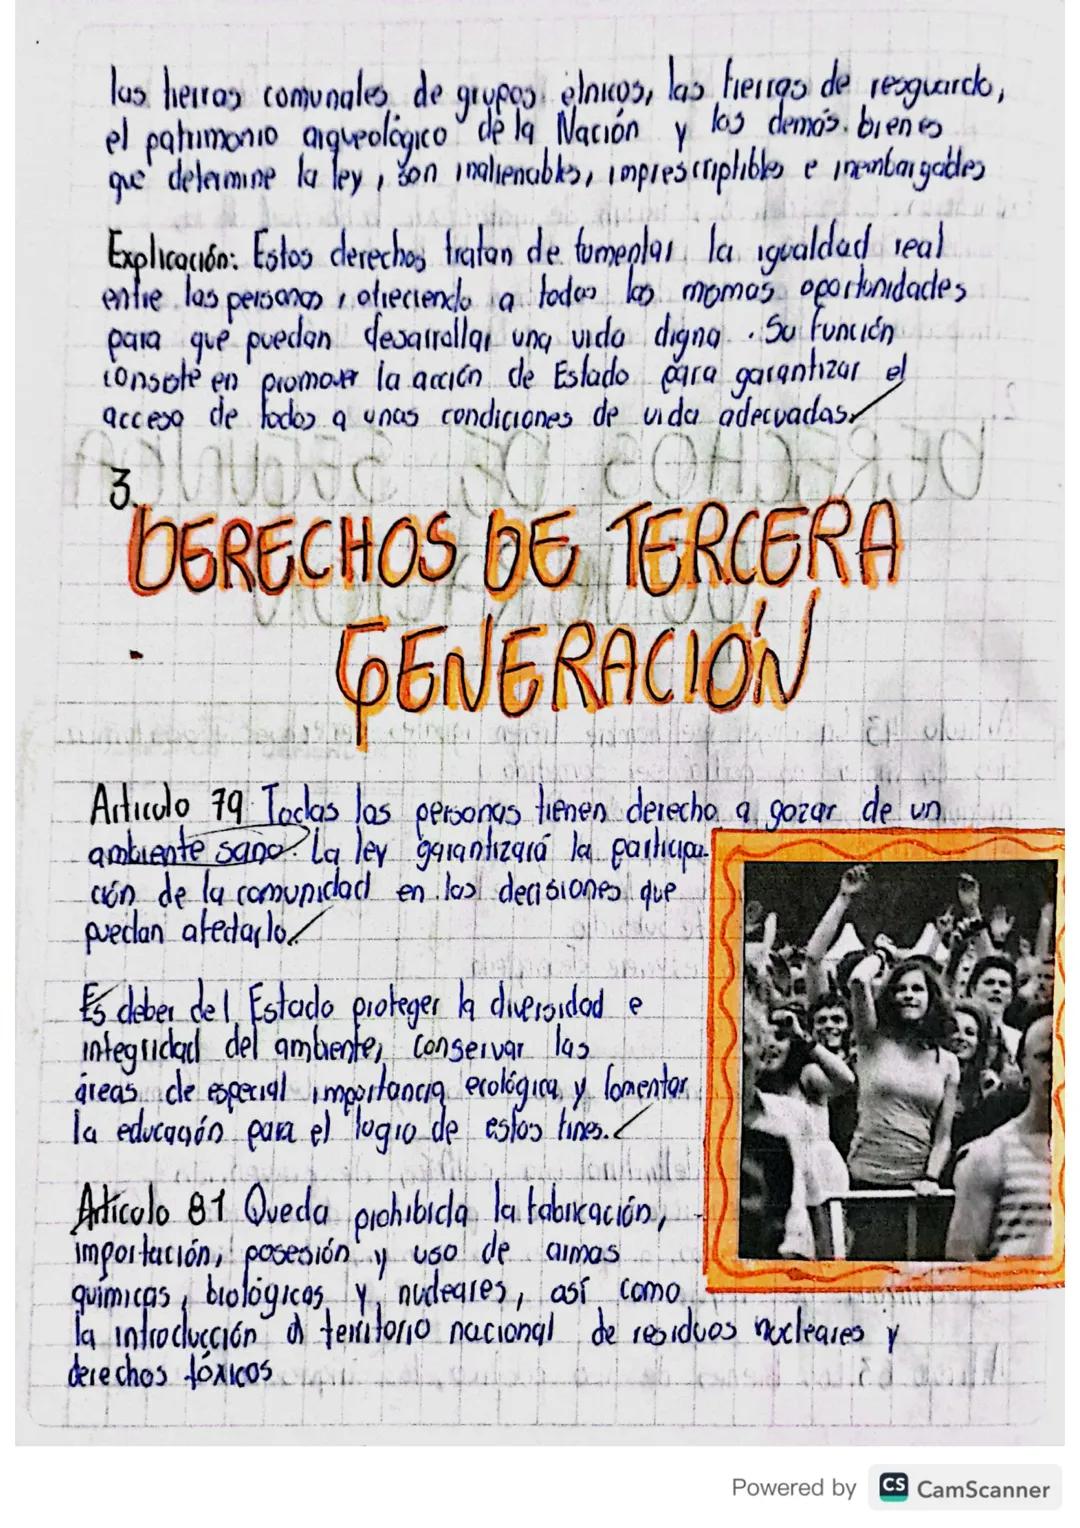 las tierras comunales de grupos étnicos, las tierras de resguardo,
el patrimonio arqueológico de la Nación y los demás bienes
que determine la ley, son inalienables, imprescriptibles e inembargables
Explicación: Estos derechos tratan de fomentar la igualdad real
entre las personas, ofreciendo a todos las mismas oportunidades
para que puedan desarrollar una vida digna. Su función
consiste en promover la acción de Estado para garantizar el
acceso de todos a unas condiciones de vida adecuadas.
3.
DERECHOS DE TERCERA
GENERACIÓN
Artículo 79 Todas las personas tienen derecho a gozar de un
ambiente sano. La ley garantizará la participa-
ción de la comunidad en las decisiones que
puedan afectarlo.
Es deber del Estado proteger la diversidad e
integridad del ambiente, conservar las
áreas de especial importancia ecológica y fomentar
la educación para el logro de estos fines.
Artículo 81 Queda prohibida la fabricación,
importación, posesión y uso de armas
químicas, biológicas y nucleares, así como
la introducción al territorio nacional de residuos nucleares y
derechos tóxicos
Powered by CS CamScanner